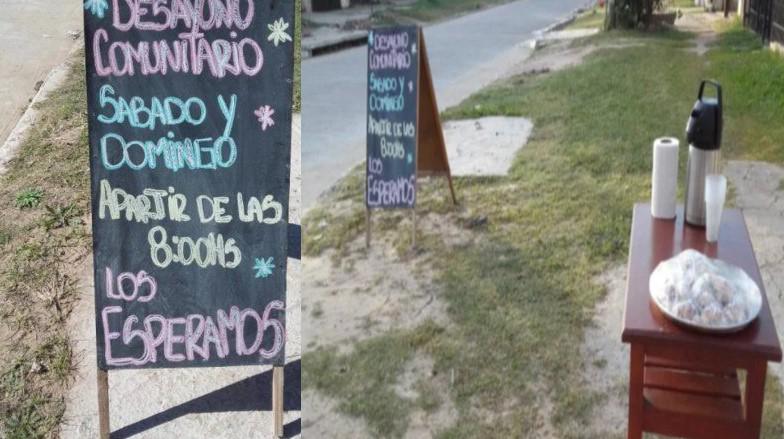 DESAYUNO
COMUNITARIO
SABADO Y
DOMINGO
APARTIR DE LAS
8:00HS
LOS
ESPERAMOS
DESAYUNO
COMUNITARIO
SABADO Y
DOMINGO
APARTIR DE LAS
8:00HS
LOS
ESPERAMOS